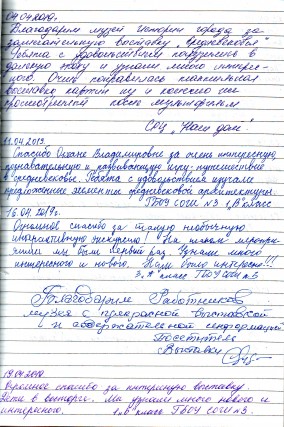 04.04.2019г.
Благодарим музей истории города за
замечательную выставку „Средневековья"
Ребята с удовольствием погрузились в
далёкую эпоху и узнали много интерес-
ного. Очень понравилась
выставка картин ну и конечно
просмотренный после мультфильм
СРЦ „Наш дом".
11.04.2019.
Спасибо Оксане Владимировне за очень интересную,
познавательную и развивающую игру-путешествие
в средневековье. Ребята с удовольствием изучали
предложенные элементы средневековой архитектуры.
ГБОУ СОШ №3 1„В" класс
16.04.2019г.
Огромное спасибо за такую необычную
интерактивную экскурсию! На таком меропри-
ятии мы были первый раз. Узнали много
интересного и нового. Нам было интересно!!!
3„А" класс ГБОУ СОШ №3
Благодарим Работников
музея с прекрасной выставкой
и содержательной информацией
Посетители
Выставки
19.04.2019
Огромное спасибо за интересную выставку.
Дети в восторге. Мы узнали много нового и
интересного. 1„В" класс ГБОУ СОШ №3.